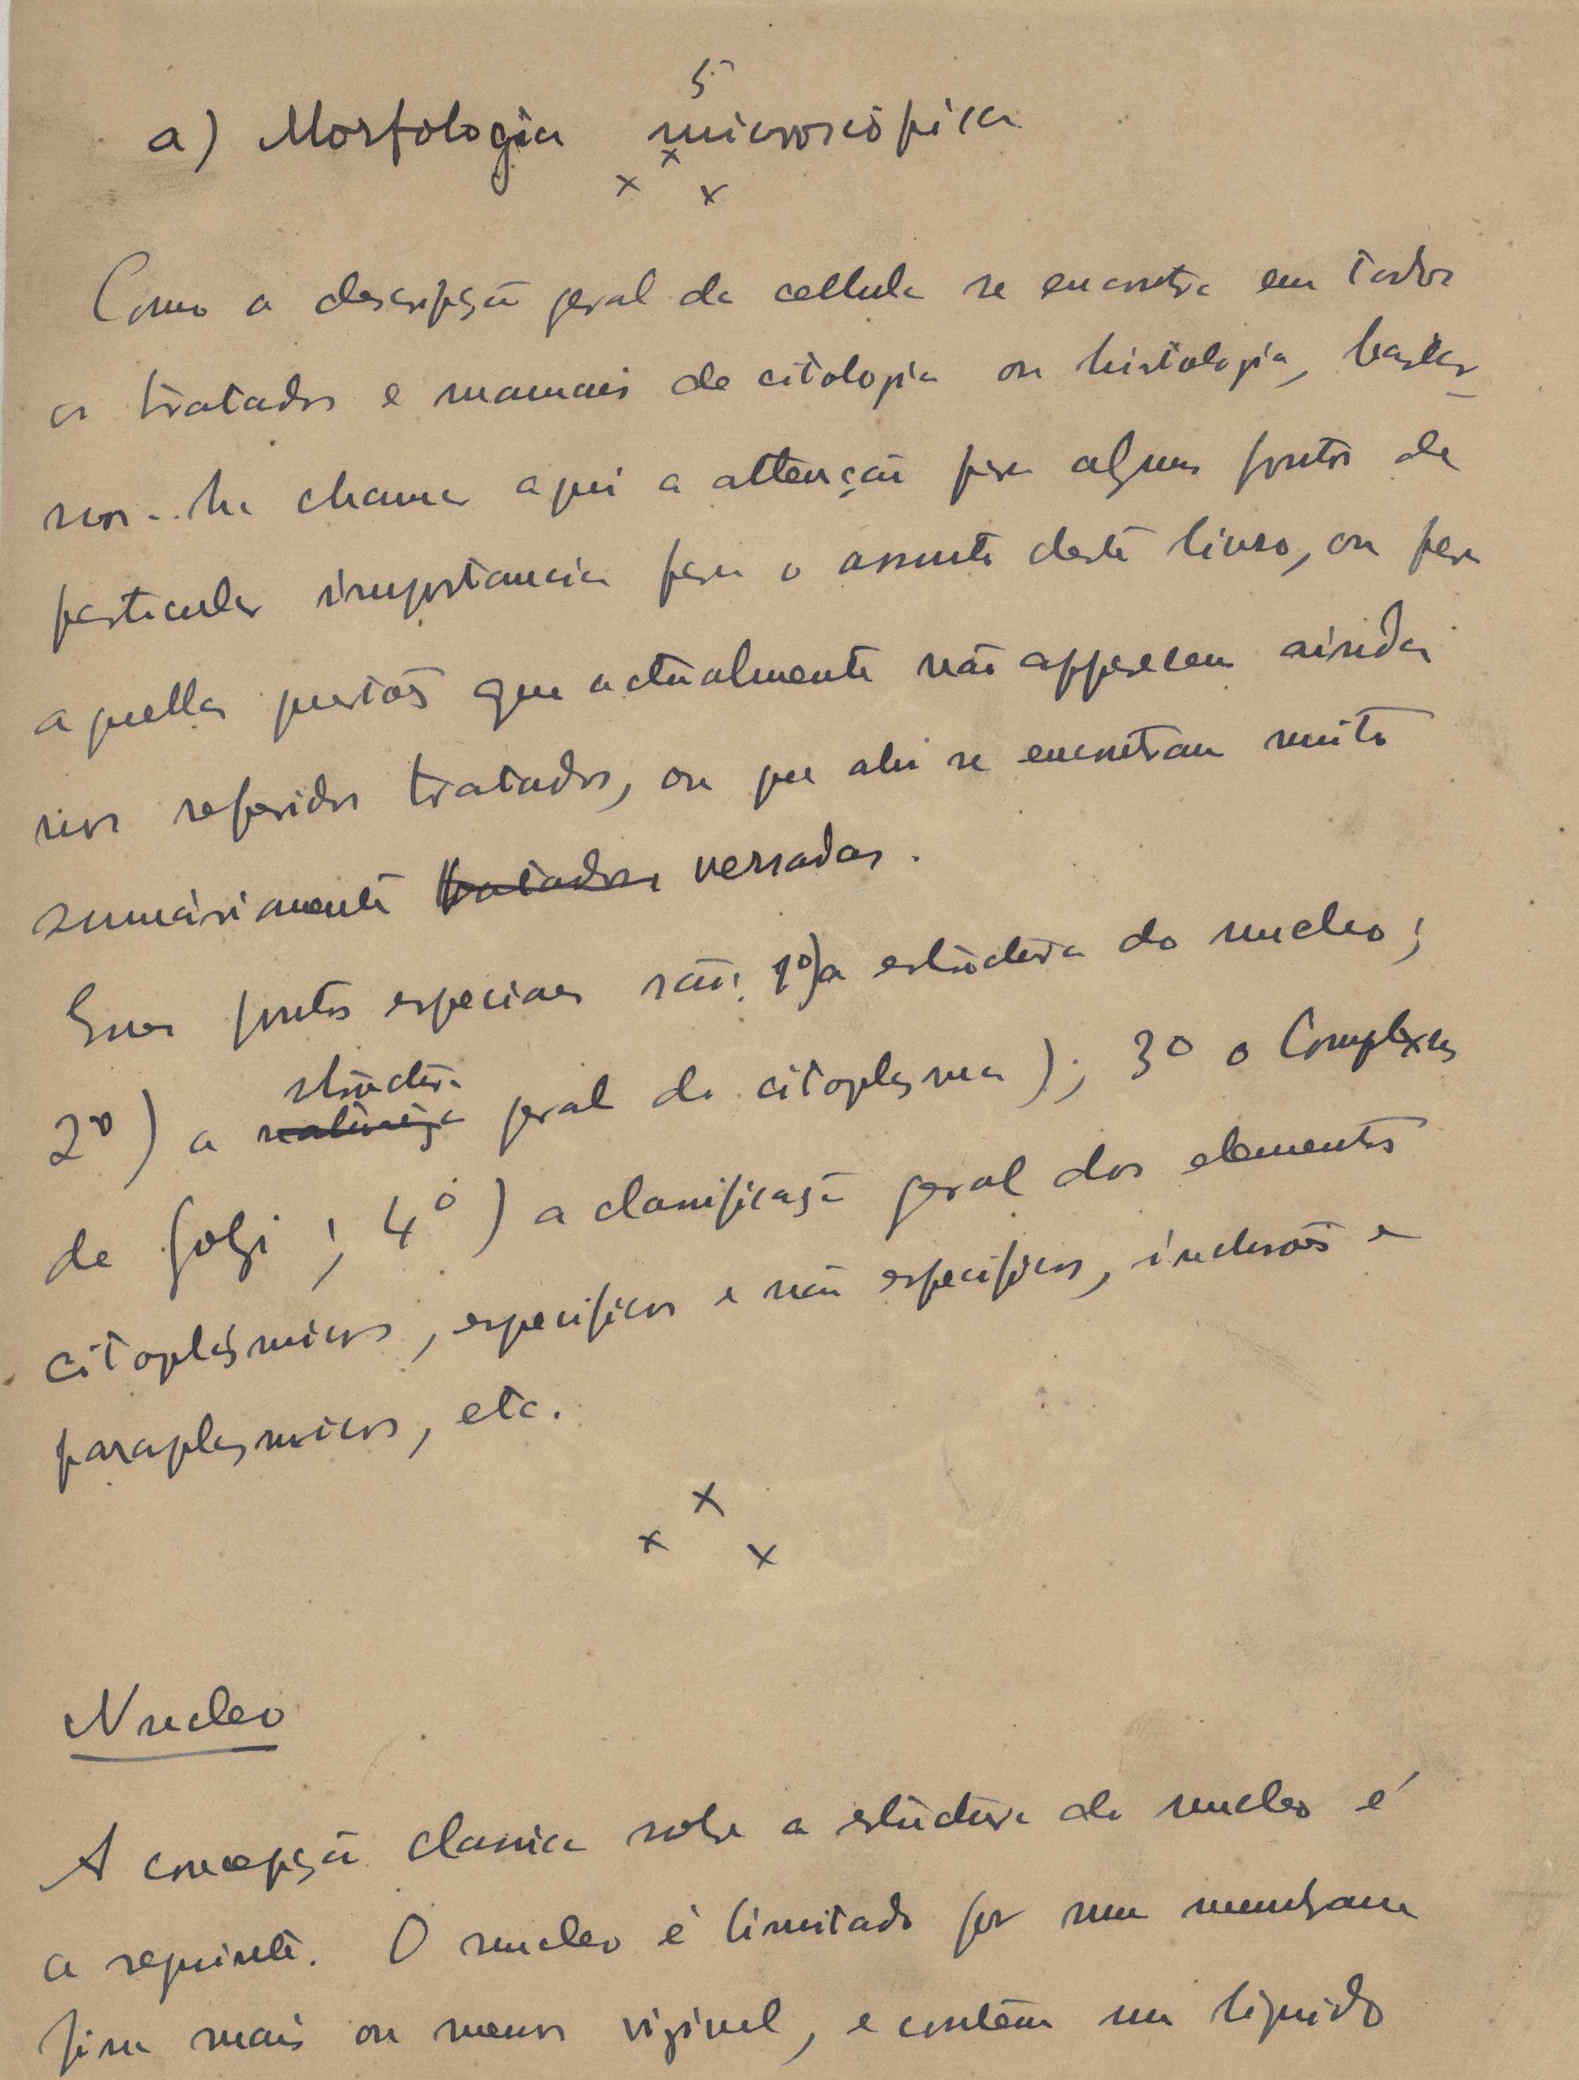 5
a) Morfologia microscópica
x x x
Como a descripção geral da cellula se encontra em todos
os tratados e manuais de citologia ou histologia, bastar-
nos-ha chamar aqui a attenção para alguns pontos de
particular importancia para o assunto deste livro, ou para
aquellas questões que actualmente não apparecem ainda
nos referidos tratados, ou que ahi se encontram muito
sumáriamente tratados versadas.
Esses pontos especiaes são: 1º) a estructura do nucleo;
structura
2º) a natureza geral do citoplasma); 3º o Complexus
de Golgi; 4º) a classificação geral dos elementos
citoplásmicos, especificos e não especificos, inclusões e
paraplasmicos, etc.
x x x
Nucleo
A concepção classica sobre a estructura do nucleo é
a seguinte. O nucleo é limitado por uma membrana
fina mais ou menos vizivel, e contêm um liquido